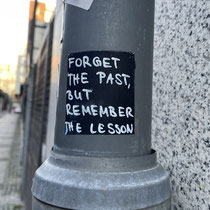 FORGET
THE PAST,
BUT
REMEMBER
THE LESSON